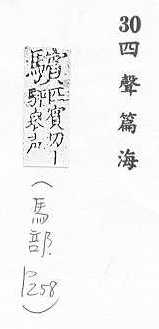 30四聲篇海
驞匹賓切丨
駍衆声
(馬部
P258)